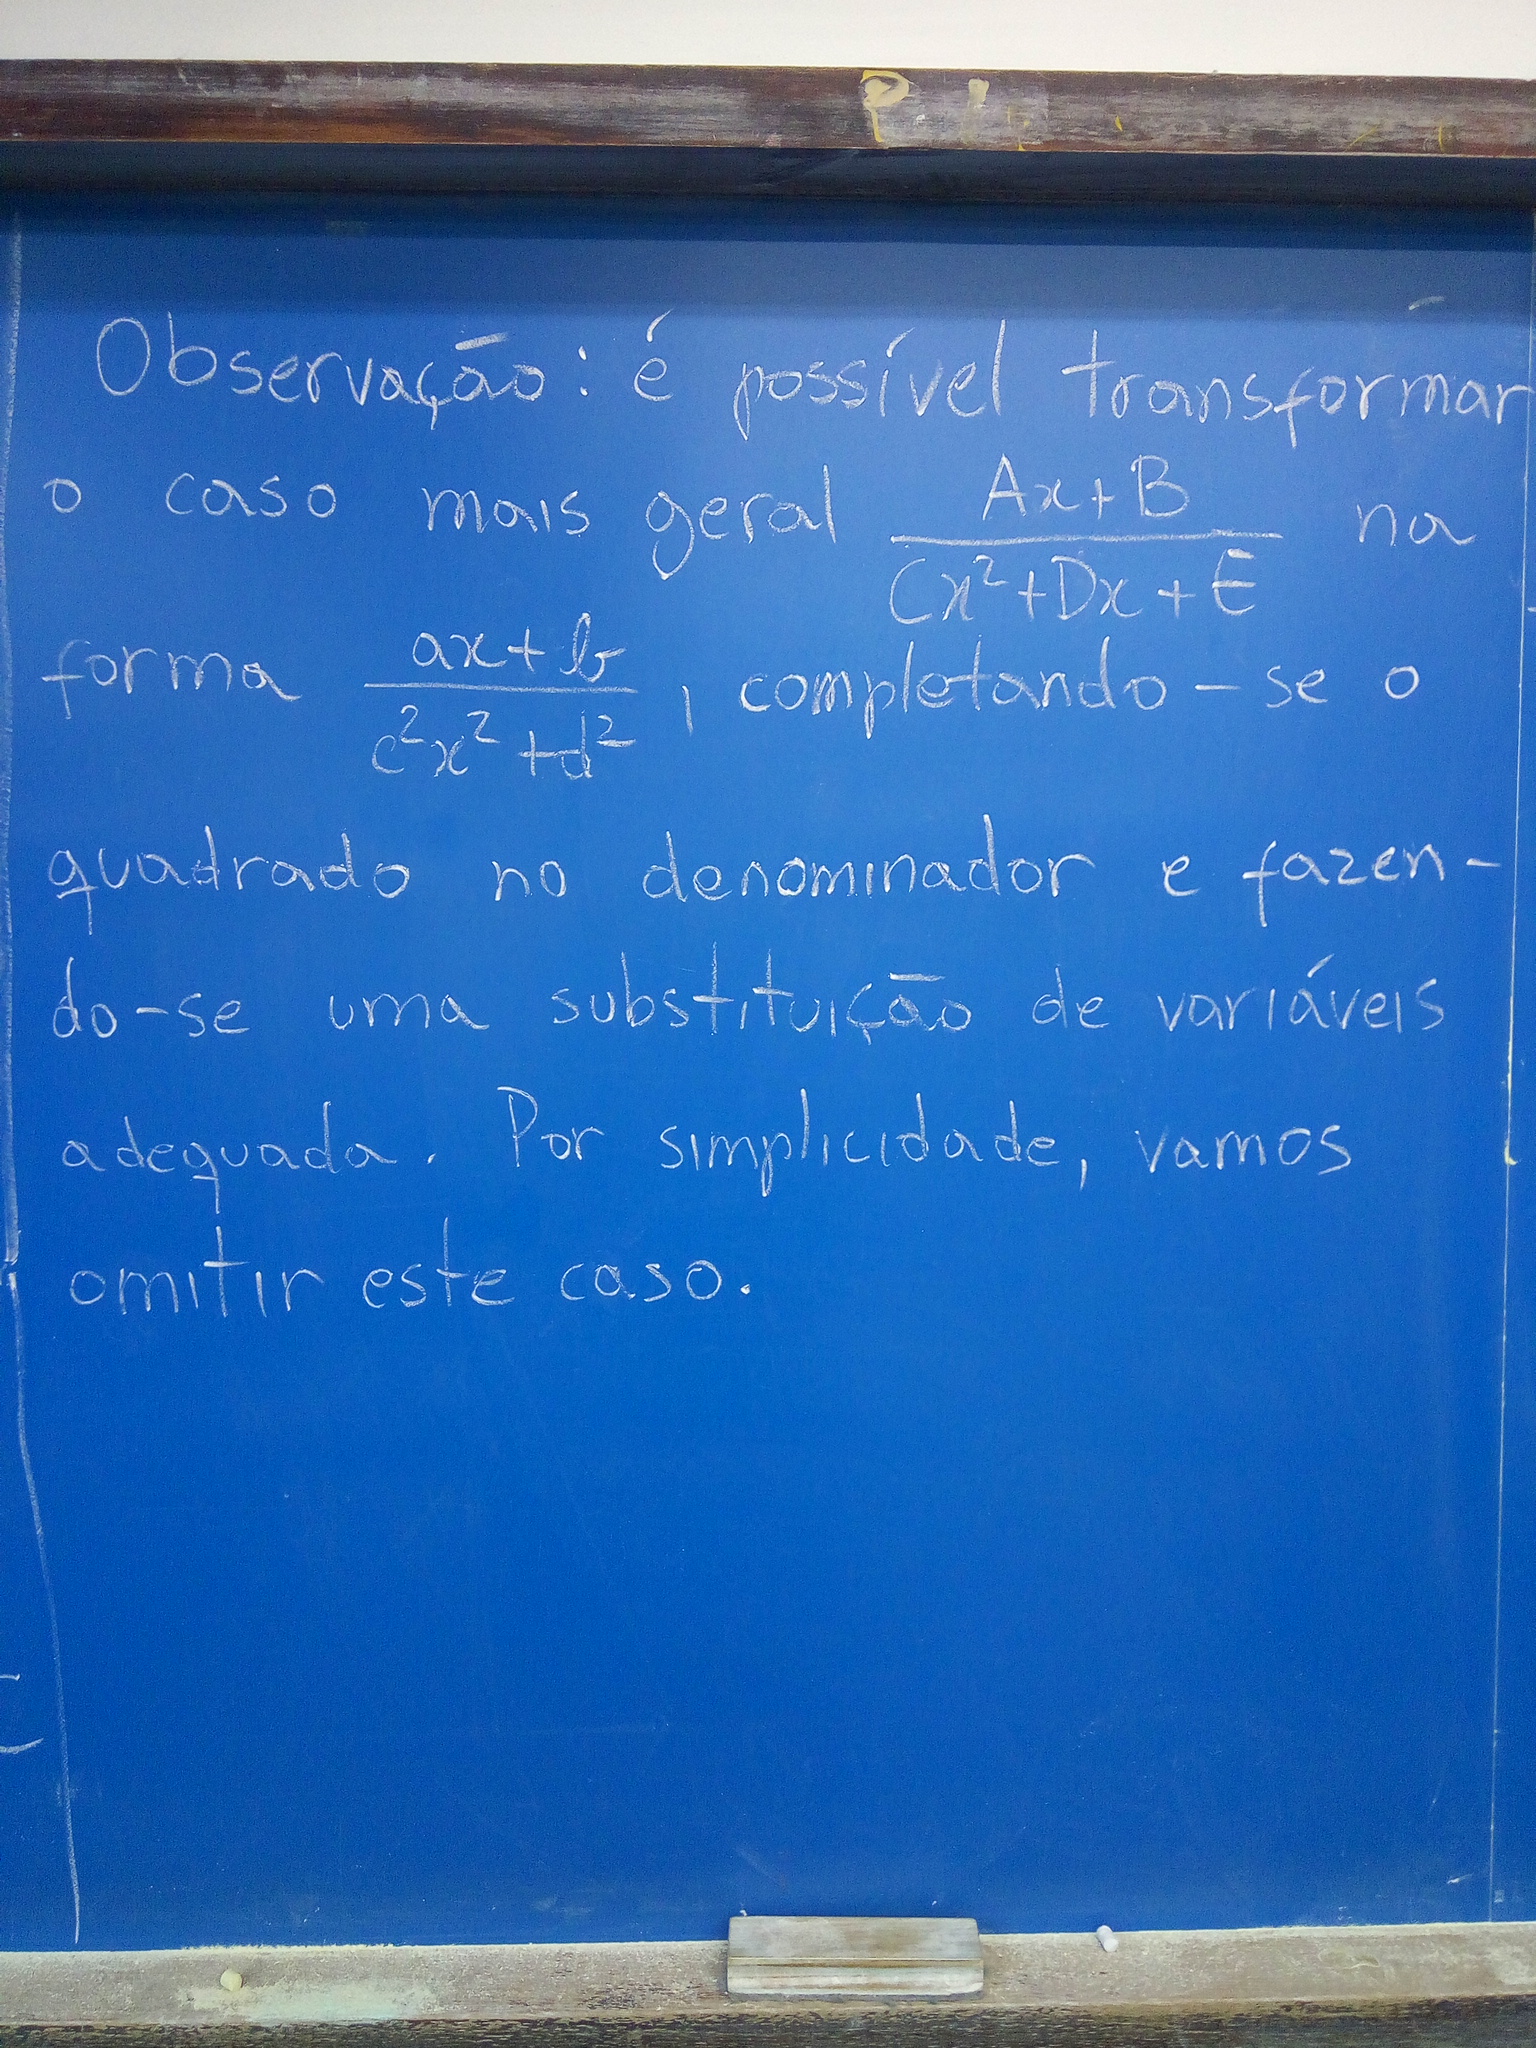 Observação: é possível transformar
o caso mais geral (Ax+B)/(Cx²+Dx+E) na
forma (ax+b)/(c²x²+d²), completando-se o
quadrado no denominador e fazen-
do-se uma substituição de variáveis
adequada. Por simplicidade, vamos
omitir este caso.